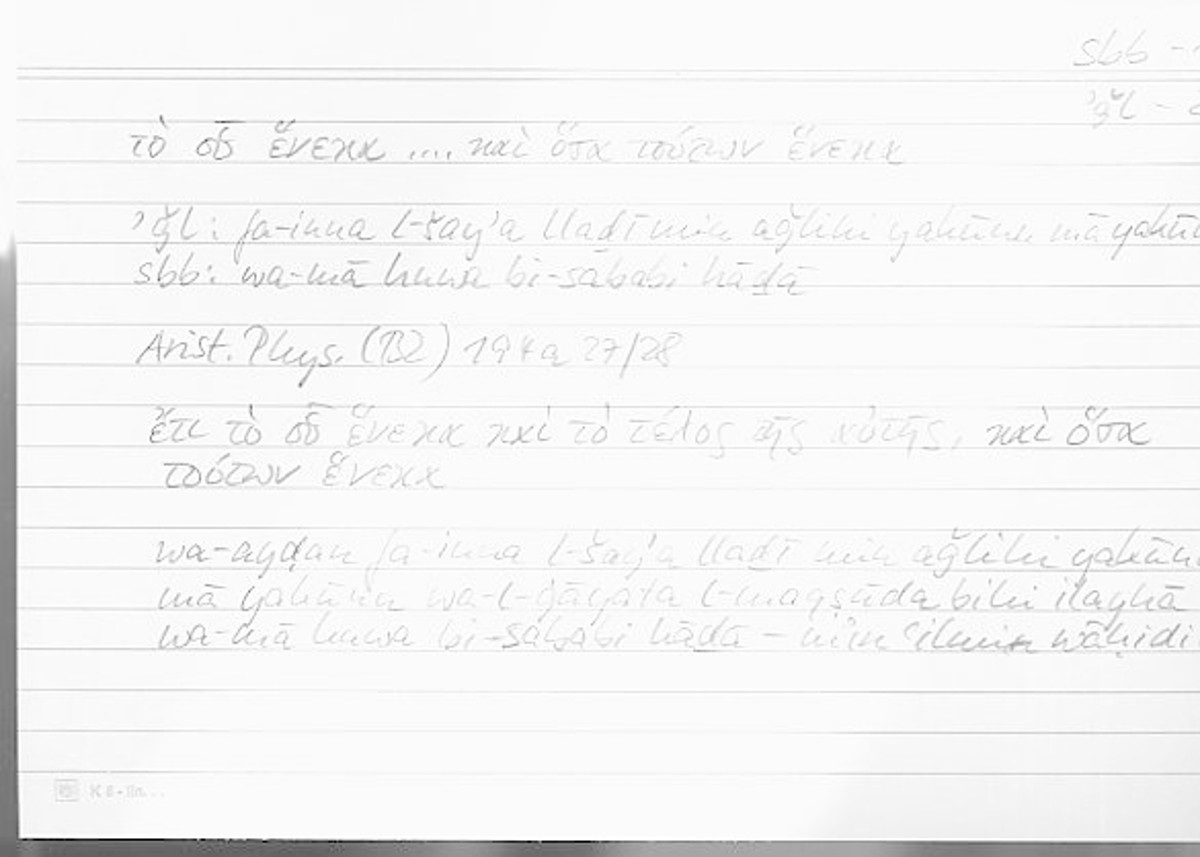 sbb -
ʾǧl -
τὸ οὗ ἕνεκα .... καὶ ὅσα τούτων ἕνεκα
ʾǧl: fa-inna l-šayʾa lladī min aǧlihi yakūnu mā yakūn
sbb: wa-mā huwa bi-sababi hāḏā
Arist. Phys. (B2) 194a 27/28
ἔτι τὸ οὗ ἕνεκα καὶ τὸ τέλος τῆς αὐτῆς, καὶ ὅσα
τούτων ἕνεκα
wa-ayḍan fa-inna l-šayʾa lladī min aǧlihi yakūnu
mā yakūnu wa-l-ġāyata l-maqṣūda bihi ilayhā
wa-mā huwa bi-sababi hāḏā - min ʿilmin wāḥidi
K 8 - lin...